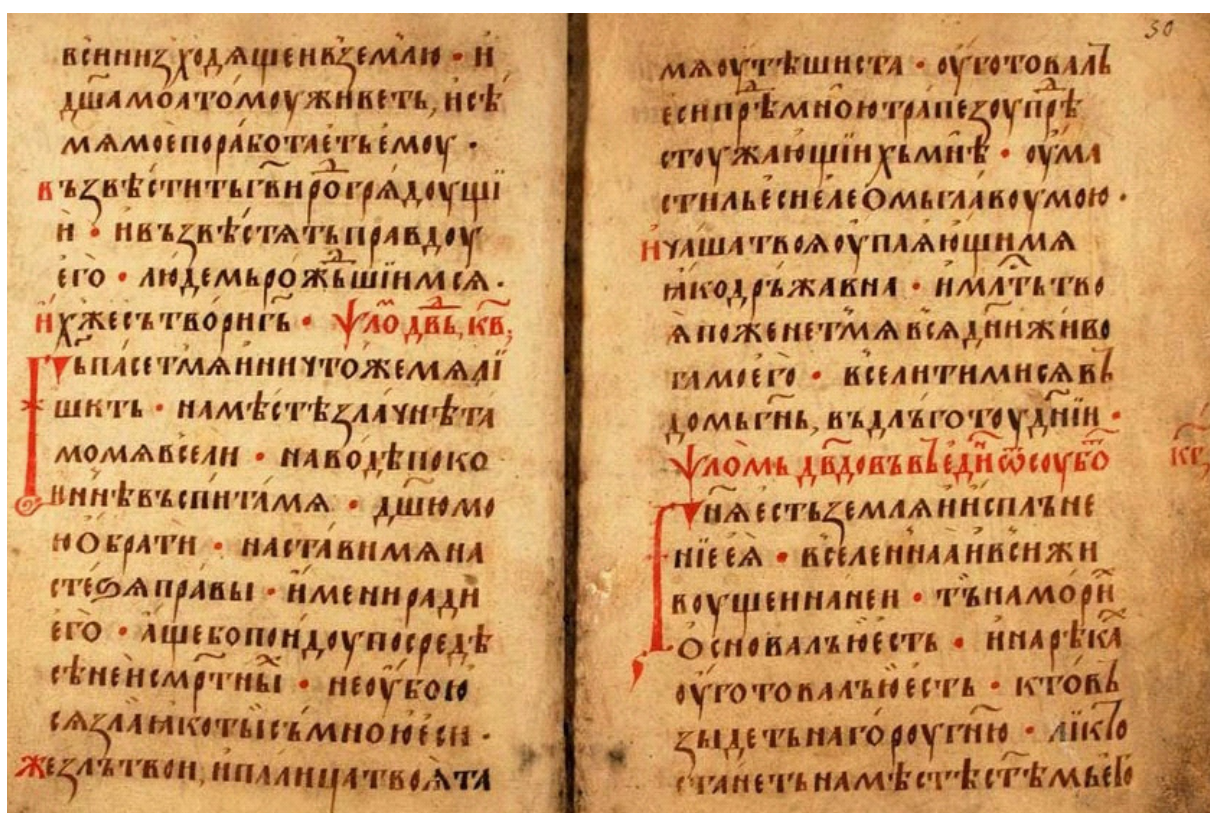 всинизходѧщеивземлю · и
дш҃амоѧтомоуживеть, исѣ
мѧмоепоработаетьемоу ·
възвѣститьгв҃ирогрѧдоущї
и · ивъзвѣстѧтьправдоу
его · людемьрожьшїимсѧ ·
ихжесътворигь҃ · ѱⷧ҇одвь҃, кв҃,
Гь҃пасетмѧиничтожемѧлї
шить · намѣстѣзлачнѣта
момѧвсели · наводѣпоко
инѣвъспитамѧ · дш҃юмо
юобрати · наставимѧна
стеѕѧправы · имениради
его · ащебопоидоупосредѣ
сѣнеисмр҃тныѧ · неоубою
сѧзлаꙗкотыисъмноюеси ·
жезлътвои, ипалицатвоѧта
30
мѧоутѣшиста · оуготовалъ
есипрⷣѣмноютрапезоупрⷣѣ
стоужающїихъмнѣ · оума
стильеси елеомьглавоумою ·
ичашатвоѧоупаѧющимѧ
ꙗкодръжавна · имлⷭ҇тьтво
ѧпоженетмѧвсѧдн҃иживо
тамоего · вселитимисѧвъ
домьгн҃ь, въдлъготоудн҃їи ·
ѱаломьдв҃довъвъедн҃ѿсоубо
Гн҃ѧестьземлѧиисплъне
нїееѧ · вселеннааивсижи
воущеинанеи · тънамори
основалъюесть · инарѣка
оуготовалъюесть · ктовъ
зыдетьнагороугн҃ю · лїкто
станетьнамѣстѣст҃ѣмьего
кг҃,